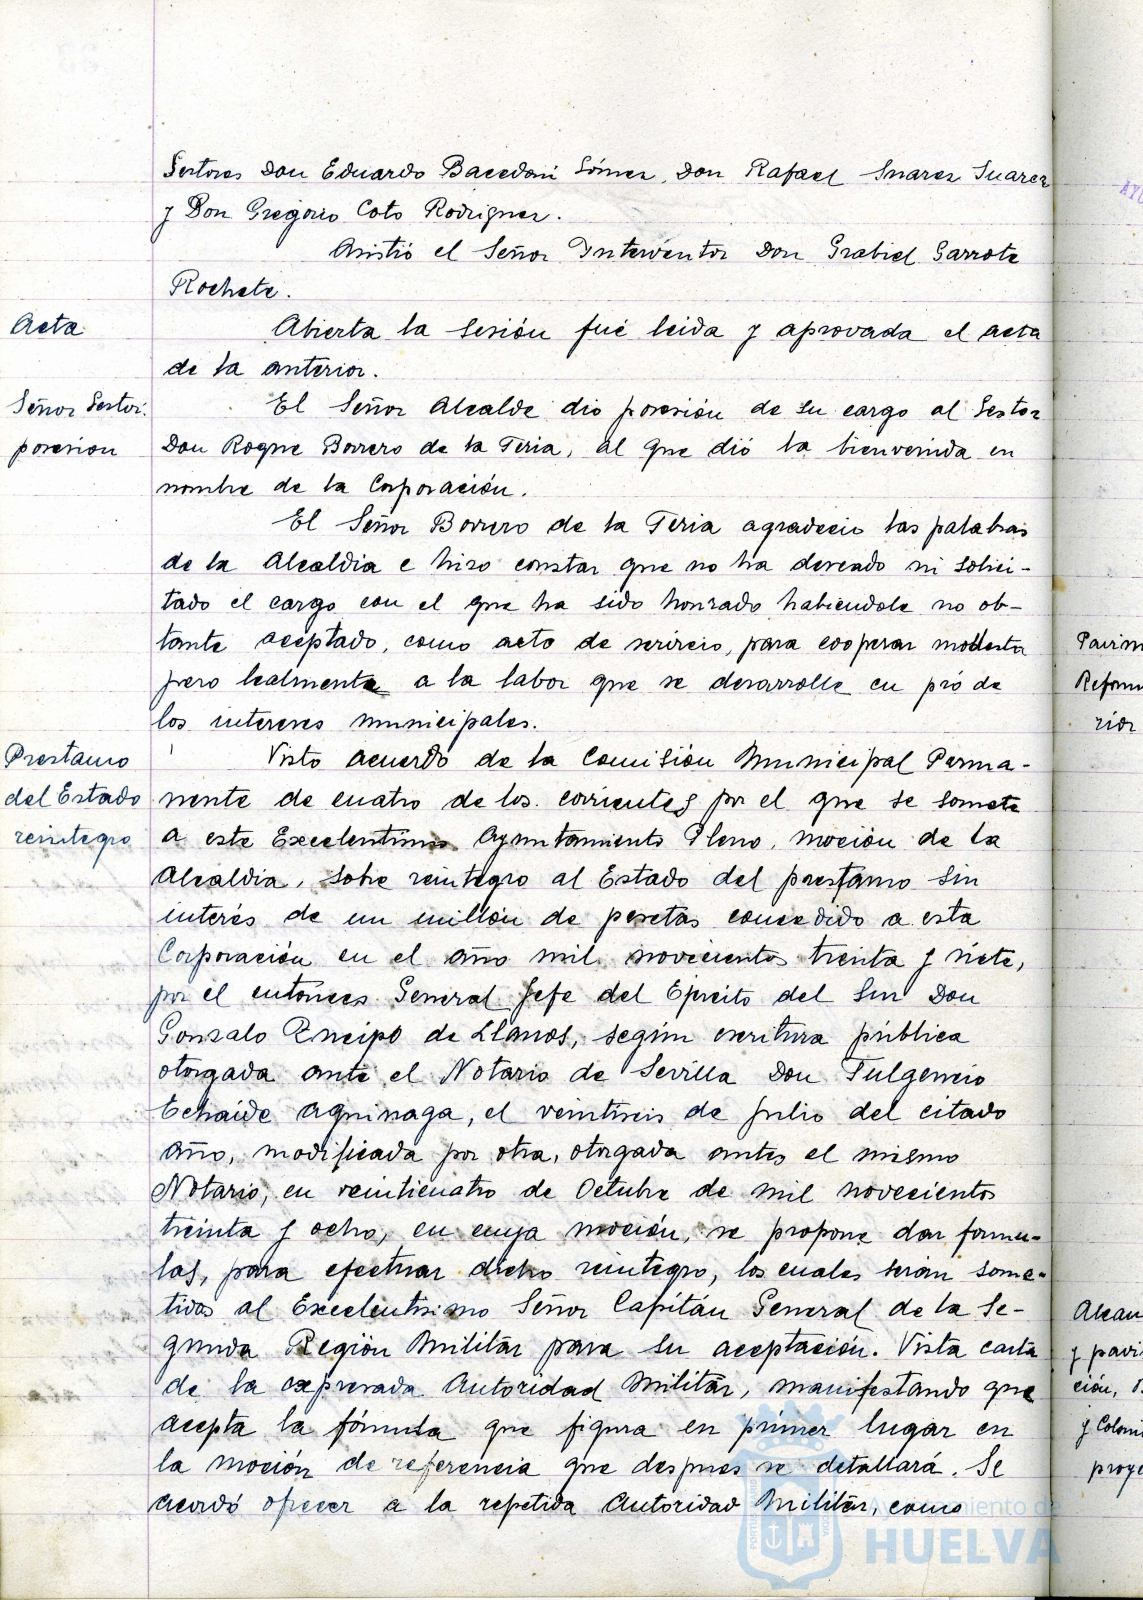 Gestores Don Eduardo Bacedoni Gómez, Don Rafael Suarez Suarez
y Don Gregorio Coto Rodriguez.
Asistió el Señor Interventor Don Grabiel Garrote
Rochete.
Acta
Abierta la sesión fué leida y aprovada el acta
de la anterior.
Señor Gestor.
posesion
El Señor Alcalde dio posesión de su cargo al Gestor
Don Roque Borrero de la Feria, al que dió la bienvenida en
nombre de la Corporación.
El Señor Borrero de la Feria agradecio las palabras
de la Alcaldia e hizo constar que no ha deseado ni solici-
tado el cargo con el que ha sido honrado habiendole no ob-
tante aceptado, como acto de servicio, para cooperar modesta
pero lealmente a la labor que se desarrolle en pró de
los intereses municipales.
Prestamo
del Estado
reintegro
Visto acuerdo de la Comisión Municipal Perma-
nente de cuatro de los corrientes por el que se somete
a este Excelentimo Ayuntamiento Pleno, moción de la
Alcaldia, sobre reintegro al Estado del prestamo sin
interés de un millón de pesetas concedido a esta
Corporación en el año mil novecientos treinta y siete,
por el entonces General Jefe del Ejercito del Sur Don
Gonzalo Queipo de Llanos, según escritura pública
otorgada ante el Notario de Sevilla Don Fulgencio
Echaide Aguinaga, el veintiseis de julio del citado
año, modificada por otra, otorgada antes el mismo
Notario, en veinticuatro de Octubre de mil novecientos
treinta y ocho, en cuya moción, se propone dar formu-
las, para efectuar dicho reintegro, los cuales serán some-
tidas al Excelentisimo Señor Capitán General de la Se-
gunda Región Militar para su aceptación. Vista carta
de la expresada Autoridad Militar, manifestando que
acepta la fórmula que figura en primer lugar en
la moción de referencia que despues se detallará. Se
acordó ofrecer a la repetida Autoridad Militar, como
Ayuntamiento de
HUELVA
AYU
Reform
rior
Alcan
y pavi
ción,
y Coloni
proye